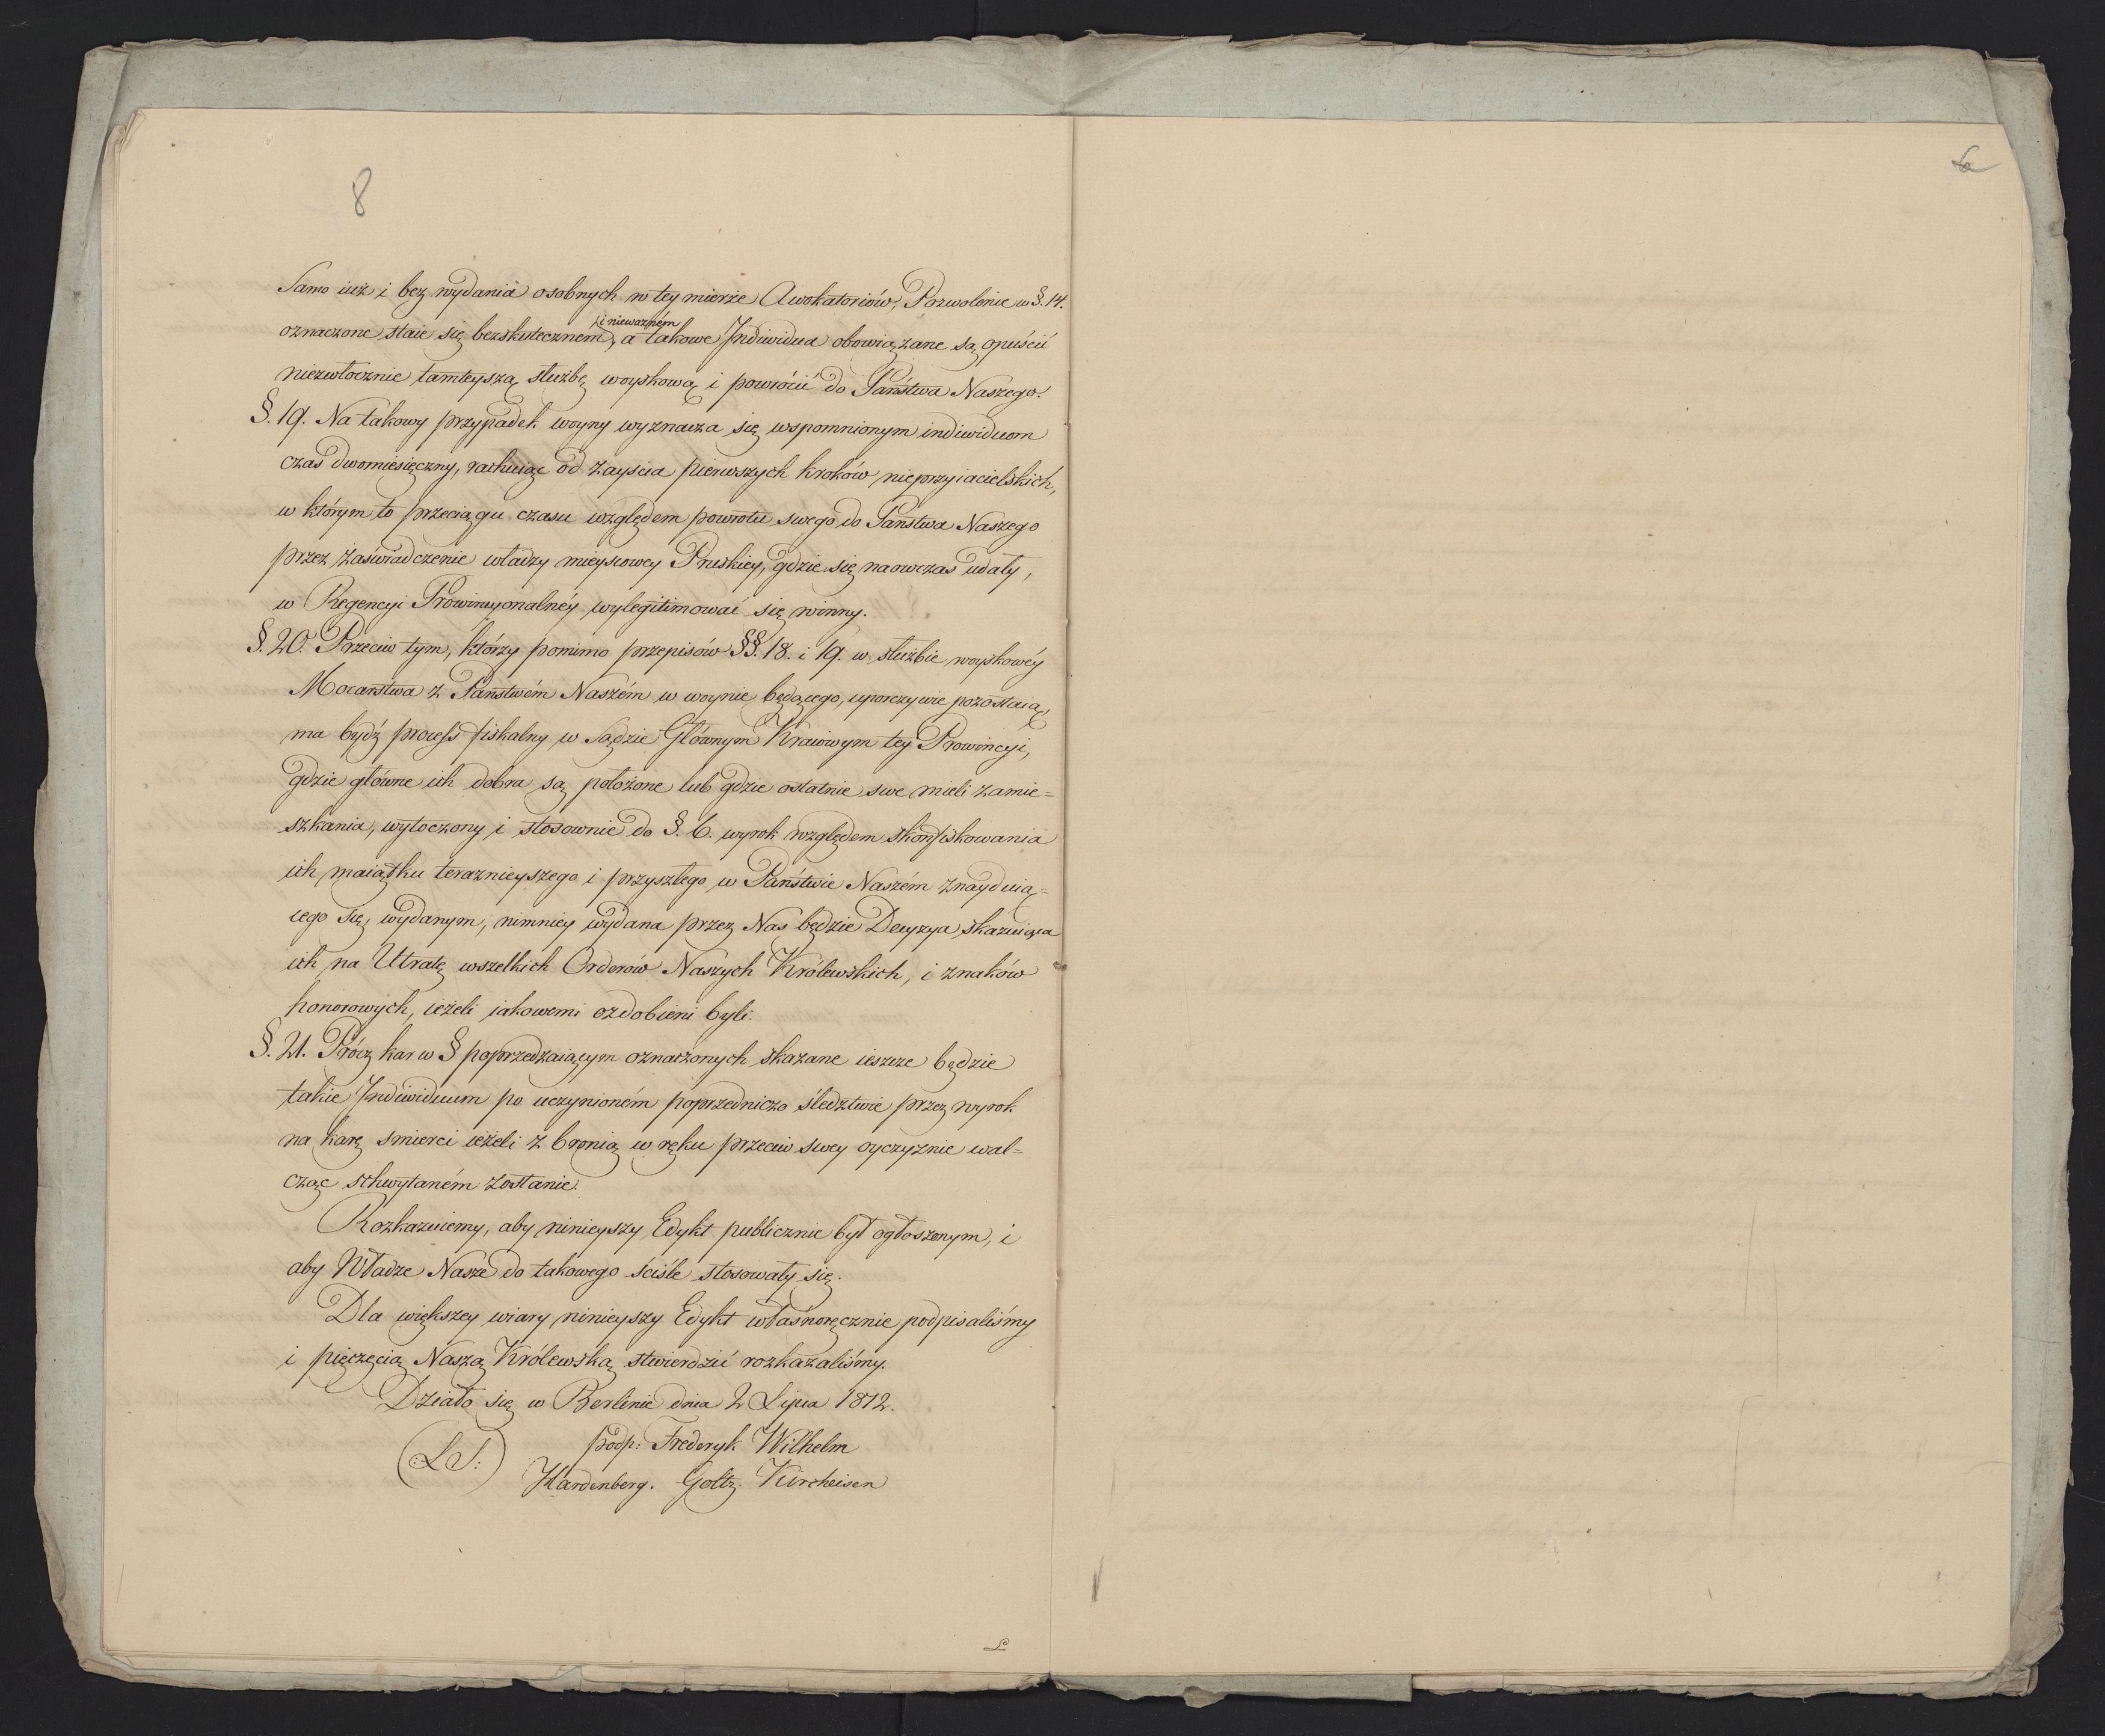 8
Samo iuż i bez wydania osobnych w tey mierze Awokatoriów, Pozwolenie w §. 14.
i nieważném
oznaczone staie się bezskutecznem, a takowe Indiwidua obowiązane są opuścić
niezwłocznie tamteyszą służbę woyskową i powrócić do Państwa Naszego.
§. 19. Na takowy przypadek woyny wyznacza się wspomnionym indiwiduom
czas dwomiesięczny, rachuiąc od zayścia pierwszych kroków nieprzyiacielskich,
w którym to przeciągu czasu względem powrotu swego do Państwa Naszego
przez zaświadczenie władzy mieyscowey Pruskiey, gdzie się naowczas udały,
w Regencyi Prowincyonalnéy wylegitimować się winny.
§. 20. Przeciw tym, którzy pomimo przepisów §§. 18. i 19. w służbie woyskowéy
Mocarstwa z Państwém Naszém w woynie będącego, uporczywie pozostaią,
ma bydź process fiskalny w Sądzie Głównym Kraiowym tey Prowincyi,
gdzie główne ich dobra są położone lub gdzie ostatnie swe mieli zamie=
szkania, wytoczony i stosownie do §. 6. wyrok względem skonfiskowania
ich maiątku teraznieyszego i przyszłego w Państwie Naszém znayduią=
cego się, wydanym, nimniey wydana przez Nas będzie Decyzya skazuiąca
ich na Utratę wszelkich Orderów Naszych Królewskich, i znaków
honorowych, ieżeli iakowemi ozdobieni byli.
§. 21. Prócz kar w § poprzedzaiącym oznaczonych skazane ieszcze będzie
takie Indiwiduum po uczynioném poprzedniczo śledztwie przez wyrok
na karę smierci ieżeli z bronią w ręku przeciw swey oyczyznie wal=
cząc schwytaném zostanie.
Rozkazuiemy, aby ninieyszy Edykt publicznie był ogłoszonym, i
aby Władze Nasze do takowego ściśle stosowały się.
Dla większey wiary ninieyszy Edykt własnoręcznie podpisaliśmy
i pięczęcią Naszą Królewską stwierdzić rozkazaliśmy.
Działo się w Berlinie dnia 2 Lipca 1812.
(: L S :) podp: Frederyk Wilhelm
Hardenberg. Goltz. Kircheisen